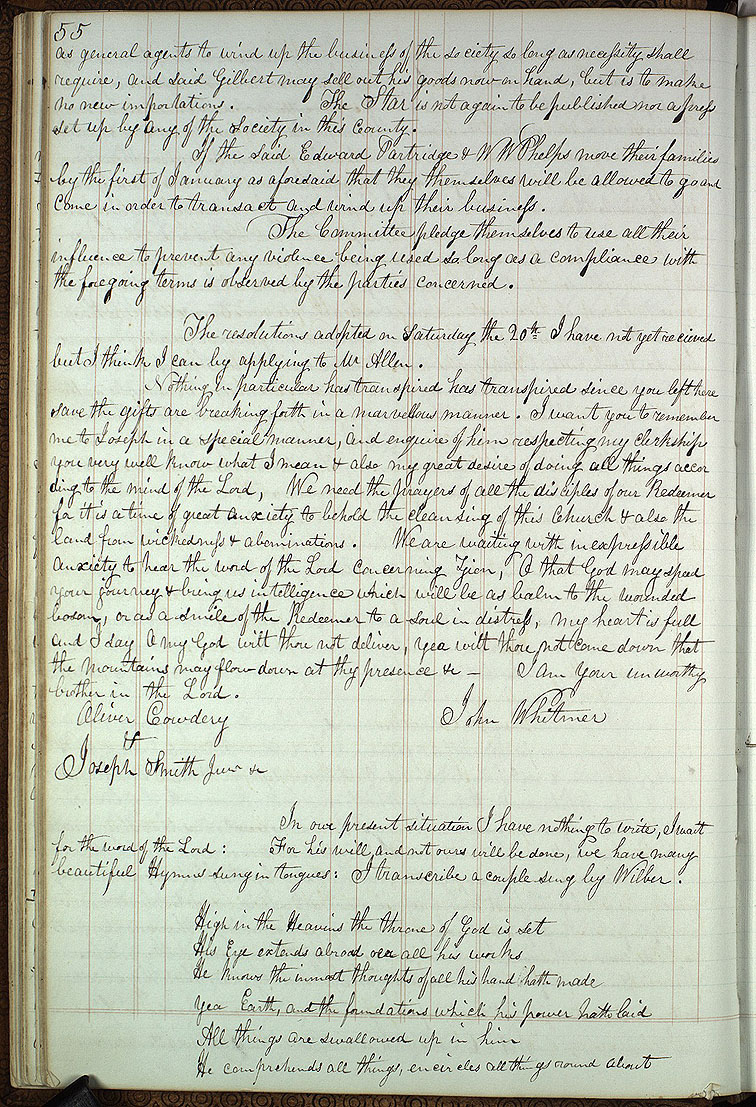 55
as general agents to wind up the business of the society so long as necessity shall
require, and said Gilbert may sell out his goods now on hand, but is to make
no new importations. The Star is not again to be published nor a press
set up by any of the society in this County.
If the said Edward Partridge & W W Phelps move their families
by the first of January as aforesaid that they themselves will be allowed to go and
Come in order to transact and wind up their business.
The Committee pledge themselves to use all their
influence to prevent any violence being used so long as a compliance with
the foregoing terms is observed by the parties concerned.
The resolutions adopted on Saturday the 20th I have not yet recieved
but I think I can by applying to Mr Allen.
Nothing in particular has transpired has transpired since you left here
save the gifts are breaking forth in a marvellous manner. I want you to remember
me to Joseph in a special manner, and enquire of him respecting my clerkship
you very well know what I mean & also my great desire of doing all things accor
ding to the mind of the Lord, We need the prayers of all the disciples of our Redeemer
for it is a time of great anxiety to behold the cleansing of this Church & also the
land from wickedness & abominations. We are waiting with inexpressible
anxiety to hear the word of the Lord concerning Zion, O that God may speed
your journey & bring us intelligence which will be as balm to the wounded
bosom, or as a smile of the Redeemer to a soul in distress, my heart is full
and I day O my God wilt thou not deliver, yea wilt thou not come down that
the mountains may flow down at thy presence &c — I am your unworthy
brother in the Lord.
Oliver Cowdery John Whitmer
&
Joseph Smith Junr &c
In our present situation I have nothing to write, I wait
for the word of the Lord: For his will and not ours will be done, we have many
beautiful Hymns sung in tongues: I transcribe a couple sung by Wilber.
High in the Heavens the throne of God is set
His Eye extends abroad oer all his works
He knows the inmost thoughts of all his hand hath made
Yea Earth, and the foundations which his power hath laid
All things are swallowed up in him
He comprehends all things, encircles all things round about